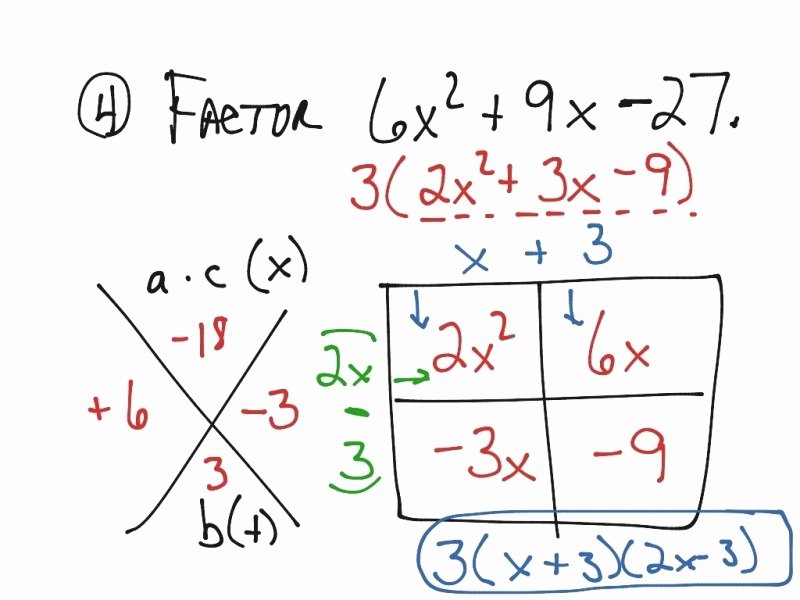 ④ FACTOR 6x² + 9x - 27.
3(2x² + 3x - 9)
x + 3
a · c (x)
-18
+6 -3
3
b(+)
2x 2x² 6x
-
3 -3x -9
3(x+3)(2x-3)